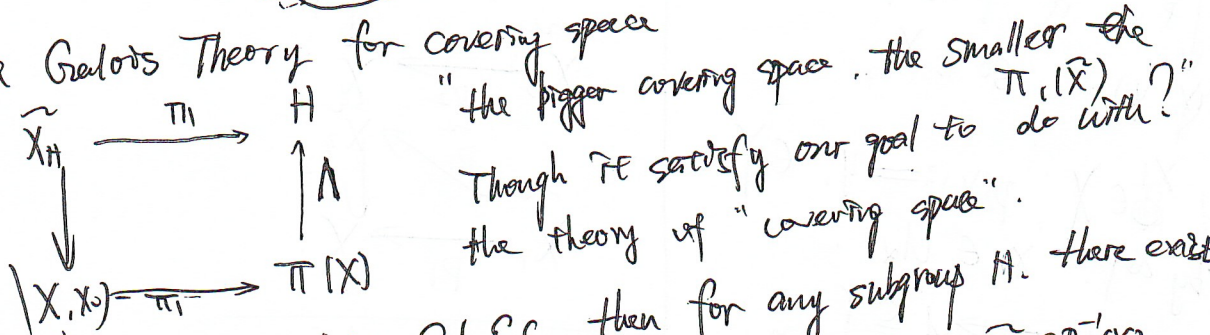 Galois Theory for covering space
"the bigger covering space, the smaller the
π₁(X̃)?"
X̃_H π₁ H
Though it satisfy our goal to do with
∧
the theory of "covering space".
(X, x₀) π₁ π(X)
then for any subgroup H. there exist